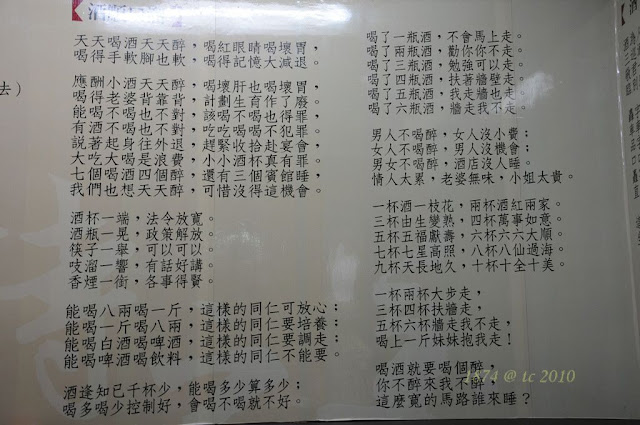 酒
去）
天天喝酒天天醉，喝紅眼睛喝壞胃，
喝得手軟腳也軟，喝得記憶大減退。
應酬小酒天天醉，喝壞肝也喝壞胃，
喝得老婆背靠背，計劃生育作了廢。
能喝不喝也不對，該喝不喝也得罪，
有酒不喝也不對，吃吃喝喝不犯罪。
說著起身往外退，
大吃大喝是浪費，
七個喝酒四個醉，還有三個
我們也想天天醉，可惜沒得這機會。
酒杯一端，法令放寬。
酒瓶一晃，政策解放。
筷子一舉，可以可以。
吱溜一響，有話好講。
香煙一銜，各事得賢。
能喝八兩喝一斤，這樣的同仁可放心；
能喝一斤喝八兩，這樣的同仁要培養；
能喝白酒喝啤酒，這樣的同仁要調走；
能喝啤酒喝飲料，這樣的同仁不能要。
酒逢知已千杯少，能喝多少算多少；
喝多喝少控制好，會喝不喝就不好。
喝了一瓶酒，不會馬上走。
喝了兩瓶酒，勸你你不走。
喝了三瓶酒，勉強可以走。
喝了四瓶酒，扶著牆壁走。
喝了五瓶酒，我走牆也走。
喝了六瓶酒，牆走我不走。
男人不喝醉，女人沒小費；
女人不喝醉，男人沒機會；
男女不喝醉，酒店沒人睡。
情人太累，老婆無味，小姐太貴。
一杯酒一枝花，兩杯酒紅兩家。
三杯由生變熟，四杯萬事如意。
五杯五福顯壽，六杯六六大順。
七杯七星高照，八杯八仙過海。
九杯天長地久，十杯十全十美。
一杯兩杯大步走，
三杯四杯扶牆走，
五杯六杯牆走我不走，
喝上一斤妹妹抱我走！
喝酒就要喝個醉，
你不醉來我不醉，
這麼寬的馬路誰來睡？
1874 @ tc 2010